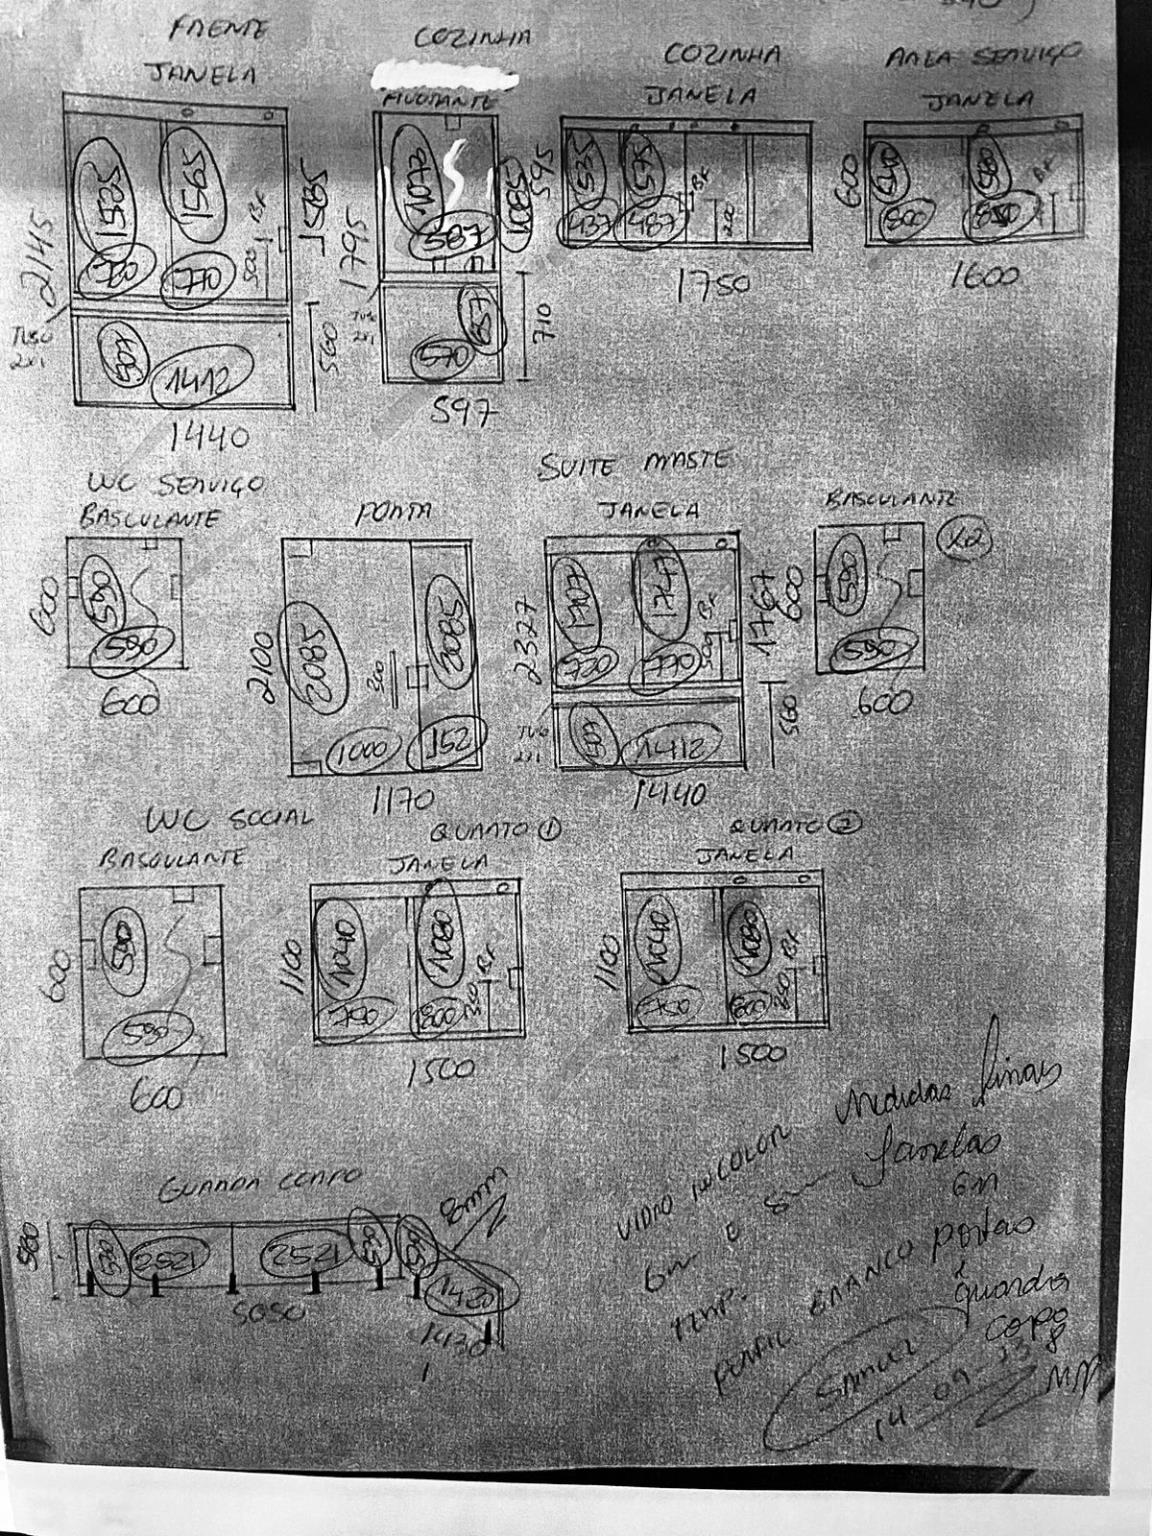 FRENTE
JANELA
1525
1565
720
770
500
BX
2145
1585
TUBO
2x1
507
1412
560
1440
COZINHA
PIVOTANTE
1072
587
1085
1795
TUBO
2x1
570
657
710
597
COZINHA
JANELA
595
535
575
437
487
BX
200
1750
AREA SERVIÇO
JANELA
600
540
580
800
850
BX
1600
WC SERVIÇO
BASCULANTE
600
590
590
600
PORTA
2100
2085
2085
1000
152
1170
SUITE MASTE
JANELA
2327
1707
1747
720
770
500
BX
1767
TUBO
2x1
507
1412
560
1440
BASCULANTE
x2
600
590
590
600
WC SOCIAL
BASCULANTE
600
590
590
600
QUARTO 1
JANELA
1100
1040
1080
750
800
BX
1500
QUARTO 2
JANELA
1100
1040
1080
750
800
BX
1500
GUARDA CORPO
580
2521
2521
8mm
5050
1420
1430
VIDRO INCOLOR
TEMP.
PERFIL BRANCO
Medidas finais
Janelas
6m
portas
guarda
corpo
8
SAMUEL
14-09-23